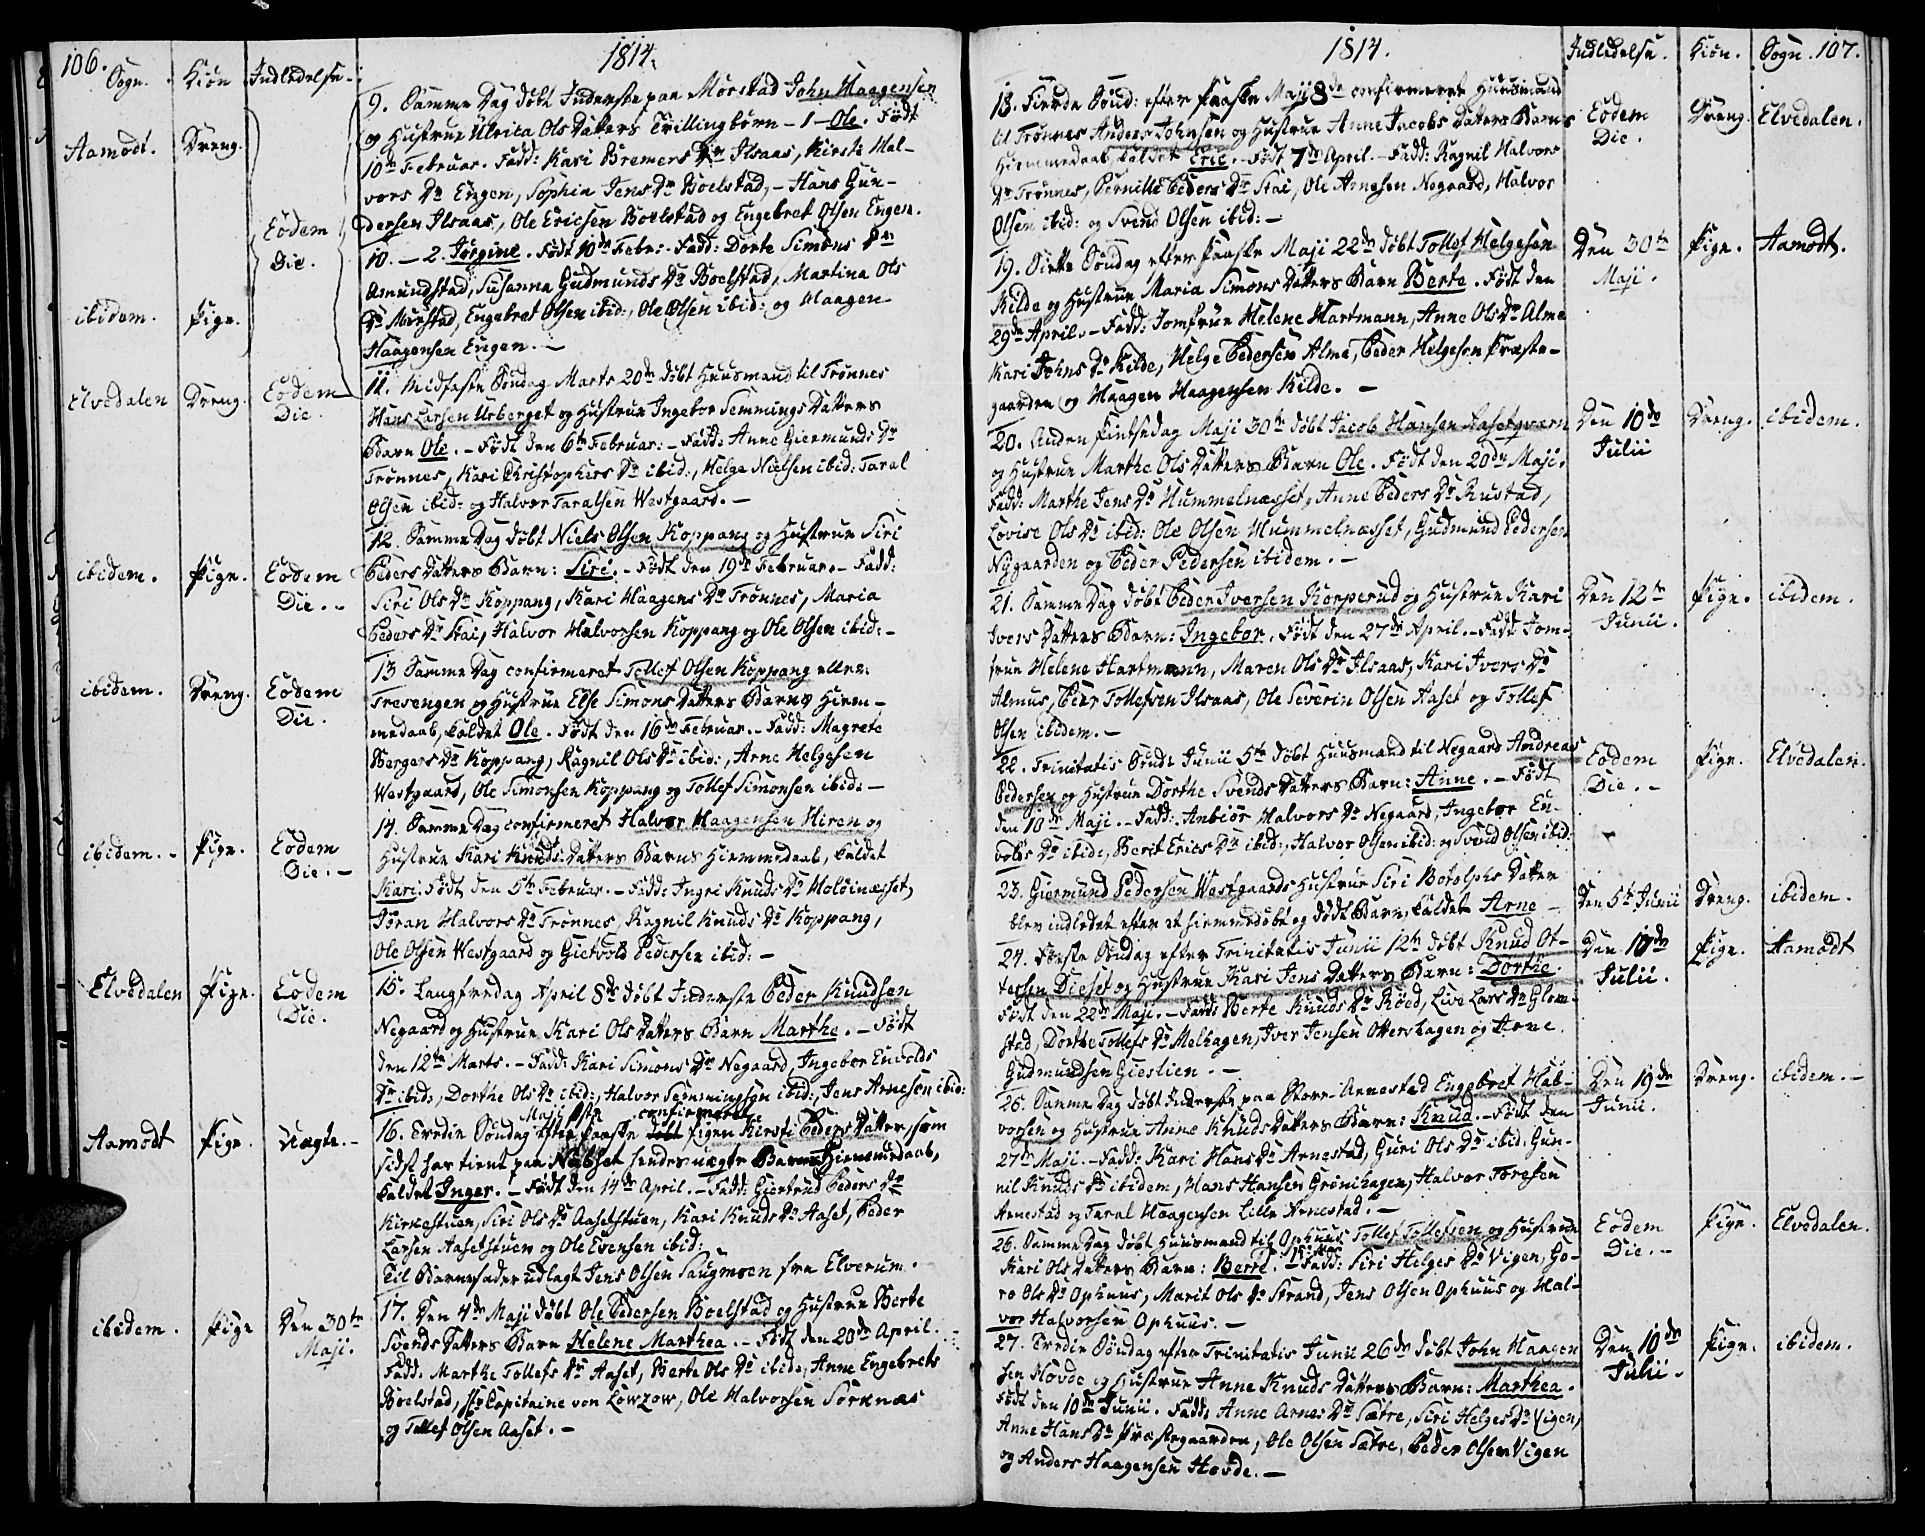 106.
Sogn. Kiön Indledelse.
1814.
9. Samme Dag döbt Inderste paa Mörstad John Haagensen
og Hustrue Ulrica Ols Datters Tvillingbörn - 1 - Ole. Födt
Aamodt. Dreng.
10de Februar. Fadd: Kari Bremers Dr Ilsaas, Kirste Hal-
vors Dr Engen, Sophia Jens Dr Boelstad, - Hans Gun-
dersen Ilsaas, Ole Ericsen Boelstad og Engebret Olsen Engen.
Eodem
Die.
10. - 2. Jörgine. Födt 10de Febr: - Fadd: Dorte Simons Dr
Amundstad, Susanna Gudmunds Dr Boelstad, Martina Ols
ibidem. Pige.
Dr Mörstad, Engebret Olsen ibid:, Ole Olsen ibid: og Haagen
Haagensen Engen. -
Elvedalen Dreng. Eodem
Die.
11. Midfaste Söndag Marts 20de döbt Huusmand til Trönnes
Hans Larsen Urberget og Hustrue Ingebor Semmings Datters
Barn Ole. - Födt den 6te Februar. - Fadd: Anne Giermunds Dr
Trönnes, Kari Christophers Dr ibid:, Helge Nielsen ibid: Taral
Olsen ibid: og Halvor Taralsen Westgaard. -
12. Samme Dag döbt Niels Olsen Koppang og Hustrue Siri
ibidem. Pige. Eodem
Die. -
Peders Datters Barn: Siri. - Födt den 19de Februar. - Fadd:
Siri Ols Dr Koppang, Kari Haagens Dr Trönnes, Maria
Peders Dr Stai, Halvor Halvorsen Koppang og Ole Olsen ibid: -
13 Samme Dag confirmeret Tollef Olsen Koppang eller
ibidem. Dreng. Eodem
Die.
Tresengen og Hustrue Else Simons Datters Barns Hiem-
medaab, kaldet Ole. Födt den 16de Februar. - Fadd: Magrete
Bergers Dr Koppang, Ragnil Ols Dr ibid:, Arne Helgesen
Westgaard, Ole Simonsen Koppang og Tollef Simonsen ibid: -
14. Samme Dag confirmeret Halvor Haagensen Hiren og
ibidem. - Pige. Eodem
Die. -
Hustrue Kari Knuds Datters Barns Hiemmedaab, kaldet
Kari. Födt den 5te Februar. - Fadd: Ingri Knuds Dr Holöinæsset,
Jöran Halvors Dr Trönnes, Ragnil Knuds Dr Koppang,
Ole Olsen Westgaard og Gietvold Pedersen ibid: -
Elvedalen Pige. Eodem
Die.
15. Langfredag April 8de döbt Inderste Peder Knudsen
Negaard og Hustrue Kari Ols Datters Barn Marthe. - Födt
den 12te Marts. - Fadd: Kari Simons Dr Negaard, Ingebor Envolds
Dr ibid:, Dorthe Ols Dr ibid:, Halvor Semmingsen ibid:, Jens Arnesen ibid:
Maji 1ste confirmeret
Aamodt Pige. Uægte. -
16. Tredie Söndag efter Paaske döbt Pigen Kirsti Peders Datter, som
sidst har tient paa Næbset hendes uægte Barns Hiemmedaab,
kaldet Inger. - Födt den 14de April. - Fadd: Giertrud Peders Dr
Kirkestuen, Siri Ols Dr Aasetstuen, Kari Knuds Dr Aaset, Peder
Larsen Aasetstuen og Ole Evensen ibid:
Til Barnefader udlagt Jens Olsen Saugmoen fra Elverum.
ibidem. Pige Den 30te
Maji.
17. Den 4de Maji döbt Ole Pedersen Boelstad og Hustrue Berte
Svends Datters Barn Helene Marthea. - Födt den 20de April.
Fadd: Marthe Tollefs Dr Aaset, Berte Ols Dr ibid:, Anne Engebrets
Boelstad, Hr Capitaine von Löwzow, Ole Halvorsen Sorknæs
og Tollef Olsen Aaset. -
1814.
Indledelse. Kiön. Sogn. 107.
18. Fierde Sönd: efter Paaske Maji 8de confirmeret Huusmand
til Trönnes Anders Johnsen og Hustrue Anne Jacobs Datters Barns
Eodem
Die. Dreng. Elvedalen.
Hiemmedaab, kaldet Eric. - Födt 7de April. - Fadd: Ragnil Halvors
Dr Trönnes, Pernille Peders Dr Stai, Ole Arnesen Negaard, Halvor
Olsen ibid: og Svend Olsen ibid: -
19. Siette Söndag efter Paaske Maji 22de döbt Tollef Helgesen
Den 30te
Maji. Pige. Aamodt.
Kilde og Hustrue Maria Simons Datters Barn Berte. Födt den
29de April. - Fadd: Jomfrue Helene Hartmann, Anne Ols Dr Alme
Kari Johns Dr Kilde, Helge Pedersen Alme, Peder Helgesen Præste-
gaarden og Haagen Haagensen Kilde. -
20. Anden Pintsedag Maji 30te döbt Jacob Hansen Aasetqværn
Den 10de
Julii Dreng. ibidem.
og Hustrue Marthe Ols Datters Barn Ole. Födt den 20de Maji.
Fadd: Marthe Jens Dr Hummelnæsset, Anne Peders Dr Rustad,
Lovise Ols Dr ibid: Ole Olsen Hummelnæsset, Gudmund Pedersen
Nÿgaarden og Peder Pedersen ibidem. -
21. Samme Dag döbt Peder Iversen Korperud og Hustrue Kari
Den 12te
Junii. Pige. ibidem.
Ivers Datters Barn: Ingebor. Födt den 27de April. - Fadd: Jom-
frue Helene Hartmann, Maren Ols Dr Ilsaas, Kari Ivers Dr
Almus, Peder Tollefsen Ilsaas, Ole Severin Olsen Aaset og Tollef
Olsen ibidem. -
22. Trinitatis Sönd: Junii 5te döbt Huusmand til Negaard Andreas
Eodem
Die. - Pige. Elvedalen.
Pedersen og Hustrue Dorthe Svends Datters Barn: Anne. - Födt
den 10de Maji. - Fadd: Anbiör Halvors Dr Negaard, Ingebor En-
volds Dr ibid:, Berit Erics Dr ibid:, Halvor Olsen ibid: og Svend Olsen ibid:
23. Giermund Pedersen Westgaards Hustrue Siri Botolphs Datter
Den 5te Junii Dreng. ibidem.
blev indledet efter et hiemmedöbt og dödt Barn, kaldet Arne -
24. Förste Söndag efter Trinitatis Junii 12te döbt Knud Ot-
Den 10de
Julii. Pige. Aamodt
tersen Dieset og Hustrue Kari Jens Datters Barn: Dorthe.
Födt den 22de Maji. - Fadd: Berte Knuds Dr Röed, Live Lars Dr Glom-
stad, Dorthe Tollefs Dr Melhagen, Iver Jensen Ottershagen og Arne
Gudmundsen Gieslien. -
25. Samme Dag döbt Inderste paa Store-Arnestad Engebret Hal-
Den 19de
Junii. Dreng. ibidem. -
vorsen og Hustrue Anne Knuds Datters Barn: Knud. - Födt den
27de Maji. - Fadd: Kari Hans Dr Arnestad, Guri Ols Dr ibid: Gun-
nil Knuds Dr ibidem, Hans Hansen Grönhagen, Halvor Toresen
Arnestad og Taral Haagensen Lille Arnestad. -
26. Samme Dag döbt Huusmand til Ophuus Tollef Tollefsen og Hustrue
Eodem
Die. - Pige. Elvedalen.
Kari Ols Datters Barn: Berte. - Fadd: Siri Helges Dr Vigen, Go-
ro Ols Dr Ophuus, Marit Ols Dr Strand, Jens Olsen Ophuus og Hal-
vor Halvorsen Ophuus. -
27. Tredie Söndag efter Trinitatis Junii 26de döbt John Haagen
Den 10de
Julii. Pige. ibidem.
sen Hovde og Hustrue Anne Knuds Datters Barn: Marthea.
Födt den 10de Junii. Fadd: Anne Arnes Dr Sætre, Siri Helges Dr Vigen,
Anne Hans Dr Præstegaarden, Ole Olsen Sætre, Peder Olsen Vigen
og Anders Haagensen Hovde. -